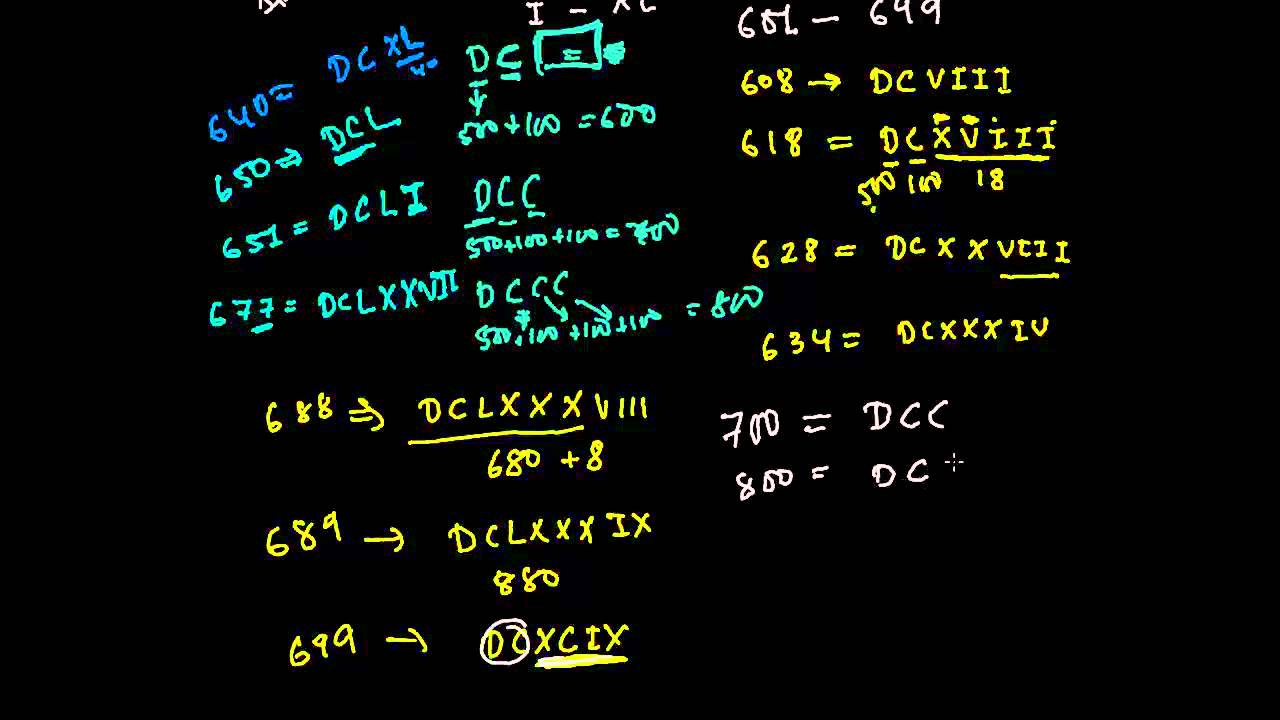 I - XL
640 = DCXL
40
DC =
500+100 = 600
650 ⇒ DCL
651 = DCLI
DCC
500+100+100 = 700
677 = DCLXXVII
DCCC
500+100+100+100 = 800
688 ⇒ DCLXXXVIII
680 + 8
689 → DCLXXXIX
880
699 → DCXCIX
601 - 699
608 → DCVIII
618 = DCXVIII
500 100 18
628 = DCXXVIII
634 = DCXXXIV
700 = DCC
800 = DC